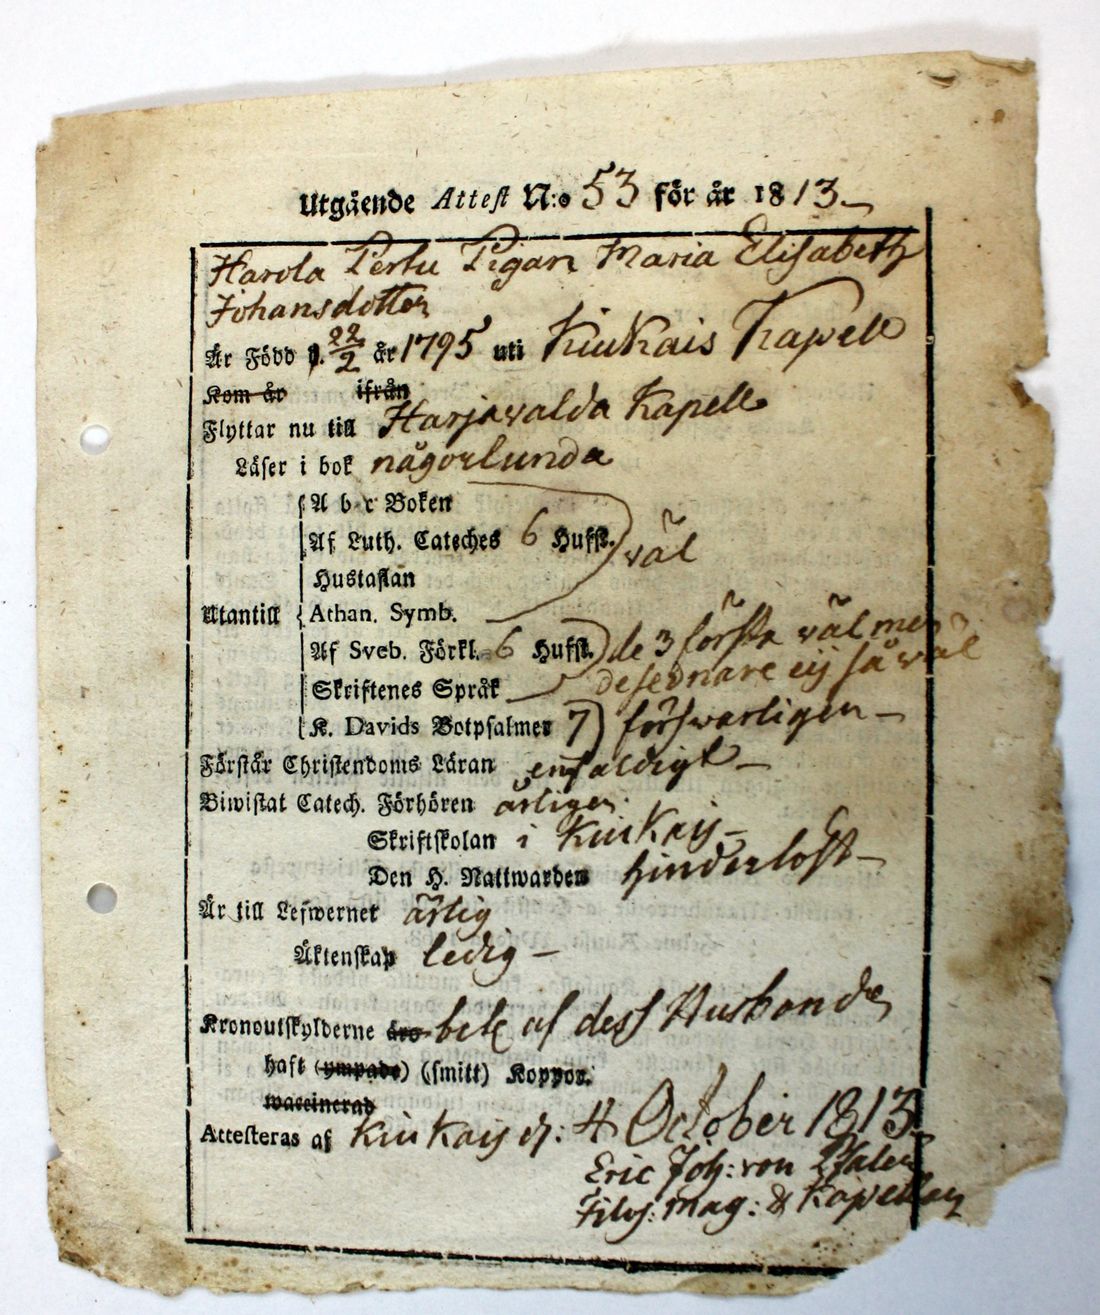 Utgående Attest N:o 53 för år 1813
Harola Pertu Pigan Maria Elisabeth
Johansdotter
Är Född d. 22/2 år 1795 uti Kiukais Kapell
Kom år ifrån
Flyttar nu till Harjavalda Kapell
Läser i bok någorlunda
A b c Boken
Af Luth. Cateches 6 Hufst. väl
Hustaflan
Utantill Athan. Symb.
Af Sveb. Förkl. 6 Hufst. de 3 första väl men
de sednare eij så väl
Skriftenes Språk
K. Davids Botpsalmer 7 försvarligen
Förstår Christendoms Läran enfaldigt
Biwistat Catech. Förhören årligen
Skriftskolan i Kiukais
Den H. Nattwarden hinderlöst
Är till Lefwernet ärlig
Äktenskap ledig
Kronoutskylderne äro bet. af dess Husbonde
haft (ympade) (smitt) Koppor.
waccinerad
Attesteras af Kiukais d: 4 October 1813.
Eric Joh: von Pfaler
Filos: mag: & Kapellan